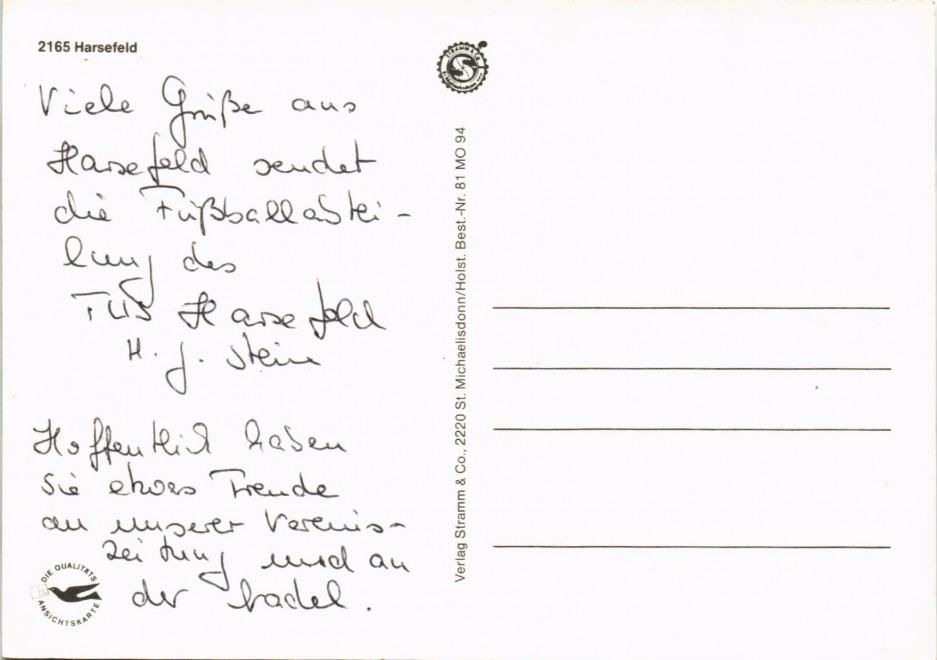 2165 Harsefeld
Viele Grüße aus
Harsefeld sendet
die Fußballabtei-
lung des
TUS Harsefeld
H. J. Stein
Hoffentlich haben
Sie etwas Freude
an unserer Vereins-
zeitung und an
der Nadel.
DIE QUALITÄTS
ANSICHTSKARTE
Verlag Stramm & Co., 2220 St. Michaelisdonn/Holst. Best.-Nr. 81 MO 94